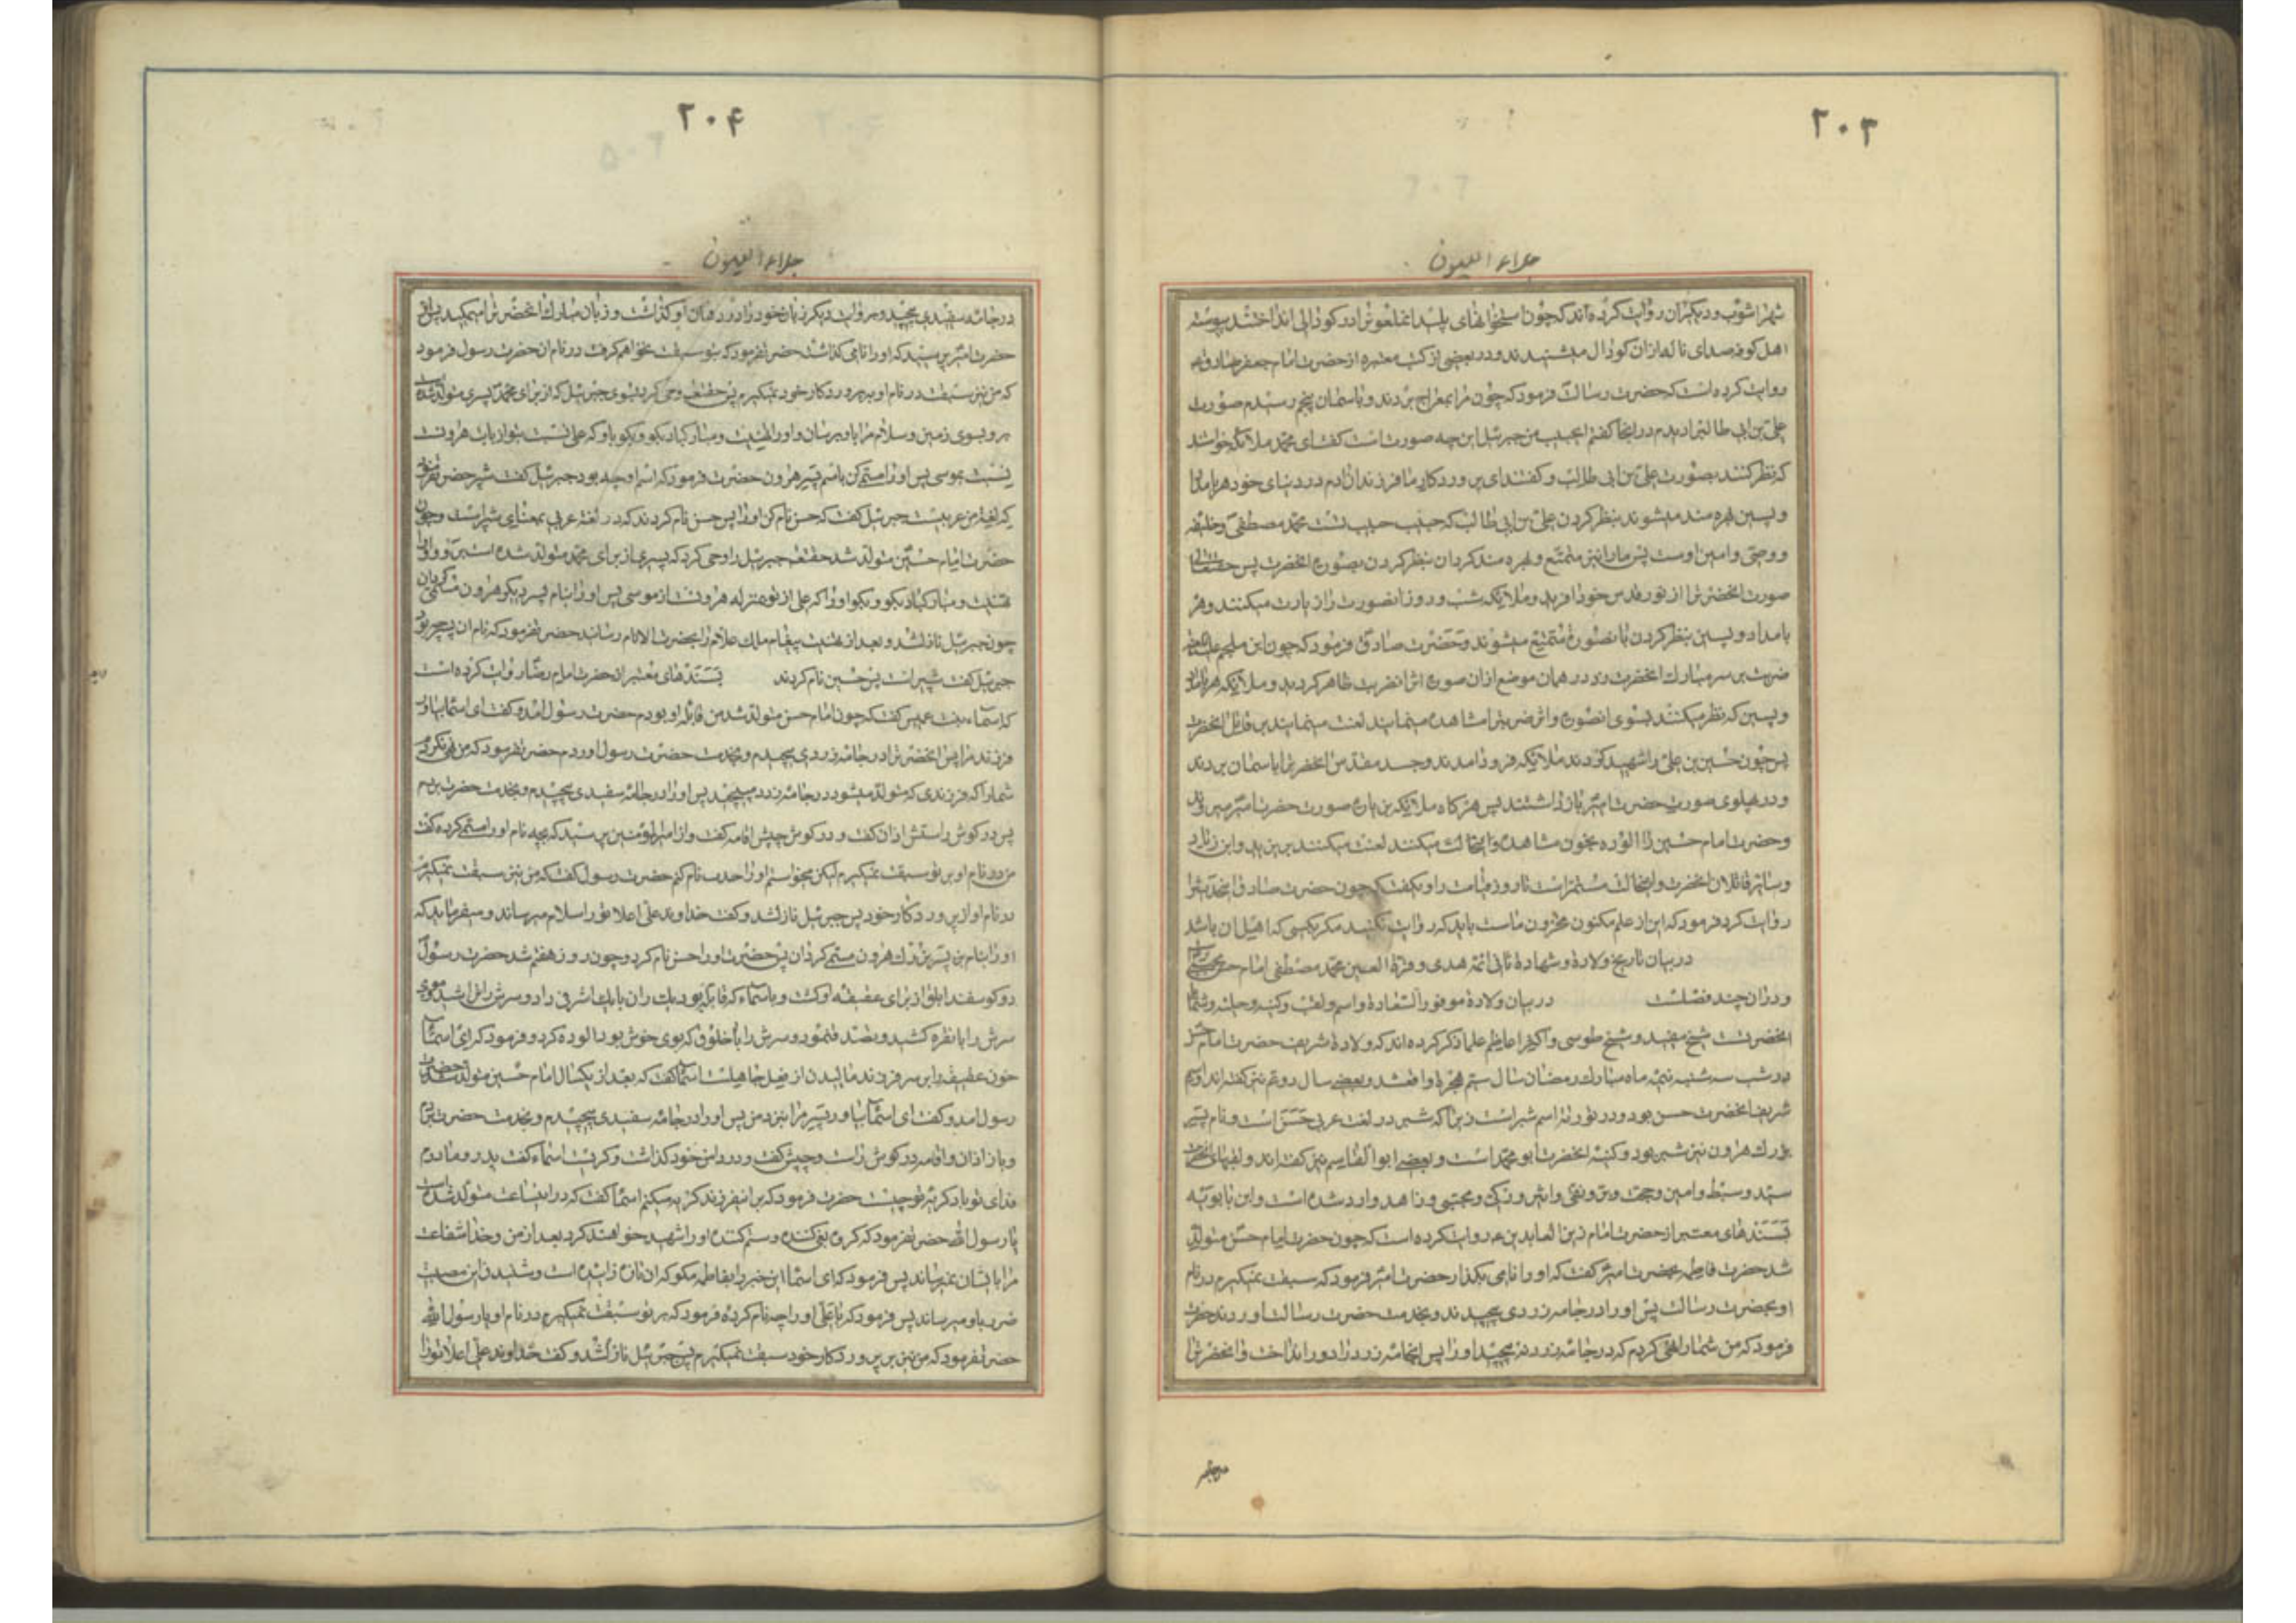 ۲۰۳
جلاء العیون
شهراشوب و دیکران روایت کرده‌اند که چون استخوانهای پلید انملعونرا در کودالی انداختند پیوسته
اهل کوفه صدای ناله ازان کودال میشنیدند و در بعضی از کتب معتبره از حضرت امام جعفر صادق
روایت کرده است که حضرت رسالت فرمود که چون مرا بمعراج بردند و باسمان پنجم رسیدم صورت
علی بن ابی طالبرا دیدم در انجا کفتم ای حبیب من جبرئیل این چه صورت است کفت ای محمد ملائکه خواستند
که نظر کنند بصورت علی بن ابی طالب و کفتند ای پروردکار ما فرزندان ادم در دنیای خود هر بامداد
و پسین بهره مند میشوند بنظر کردن علی بن ابی طالب که حبیب حبیب تست محمد مصطفی و خلیفه
و وصی و امین اوست پس ما را نیز متمتع و بهره مند کردان بنظر کردن بصورت انحضرت پس حقتعالی
صورت انحضرترا از نور قدس خود افرید و ملائکه شب و روز انصورت را زیارت میکنند و هر
بامداد و پسین بنظر کردن بانصورت متمتع میشوند و حضرت صادق فرمود که چون ابن ملجم
ضربت بر سر مبارک انحضرت زد در همان موضع ازان صورت اثر انضربت ظاهر کردید و ملائکه هر بامداد
و پسین که نظر میکنند بسوی انصورت و اثر ضربترا مشاهده مینمایند لعنت مینمایند بر قاتل انحضرت
پس چون حسین بن علی را شهید کردند ملائکه فرود امدند و جسد مقدس انحضرترا باسمان بردند
و در پهلوی صورت حضرت امیر بازداشتند پس هرکاه ملائکه بزیارت صورت حضرت امیر میروند
و حضرت امام حسین را الوده بخون مشاهده با انحالت میکنند لعنت میکنند بر یزید و ابن زیاد
و سایر قاتلان انحضرت و انحالت مستمر است تا روز قیامت راوی کفت که چون حضرت صادق انحدیثرا
روایت کرد فرمود که این از علم مکنون مخزون ماست باید که روایت نکنید مکر بکسی که اهل ان باشد
در بیان تاریخ ولادة و شهادة ثانی ائمه هدی و قرة العین محمد مصطفی امام حسن مجتبی
و دران چند فصلست در بیان ولادة موفور السعادة و اسم و لقب و کنیه و حلیه و شمایل
انحضرتست شیخ مفید و شیخ طوسی و اکثر اعاظم علما ذکر کرده‌اند که ولادة شریف حضرت امام حسن
در شب سه شنبه نیمه ماه مبارک رمضان سال سیم هجرة واقع شد و بعضی سال دویم نیز کفته‌اند و اسم
شریف انحضرت حسن بود و در توریة اسم شبر است زیرا که شبر در لغت عربی حسن است و نام پسر
بزرک هرون نیز شبر بود و کنیه انحضرت ابو محمد است و بعضی ابو القاسم نیز کفته‌اند و لقبهای انحضرت
سید و سبط و امین و حجت و بر و نقی و اثیر و زکی و مجتبی و زاهد وارد شده است و ابن بابویه
بسندهای معتبر از حضرت امام زین العابدین روایت کرده است که چون حضرت امام حسن متولد
شد حضرت فاطمه بحضرت امیر کفت که او را نامی بکذار حضرت امیر فرمود که سبقت نمیکیرم در نام
او بحضرت رسالت پس او را در جامه زردی پیچیدند و بخدمت حضرت رسالت اوردند حضرت
فرمود که من شما را نهی کردم که در جامه زرد نه پیچید او را پس انجامه زرد را دور انداخت و انحضرترا
درجامه
۲۰۴
جلاء العیون
در جامه سفیدی پیچید و بروایت دیکر زبان خود را در دهان او کذاشت و زبان مبارک انحضرترا میمکید پس از
حضرت امیر پرسید که او را نامی کذاشته حضرت فرمود که بتو سبقت نخواهم کرفت در نام ان حضرت رسول فرمود
که من نیز سبقت در نام او بر پروردکار خود نمیکیرم پس حقتعالی وحی کرد بسوی جبرئیل که از برای محمد پسری متولد شده است
برو بسوی زمین و سلام مرا باو برسان و او را تهنیت و مبارکباد بکو و بکو باو که علی نسبت بتو از بابت هرونست
نسبت بموسی پس او را مسمی کن باسم پسر هرون حضرت فرمود که اسم او چه بود جبرئیل کفت شبر حضرت فرمود
که لغت من عربیست جبرئیل کفت که حسن نام کن او را پس حسن نام کردند که در لغت عربی بمعنای شبر است و چون
حضرت امام حسین متولد شد حقتعالی جبرئیل را وحی کرد که پسری از برای محمد متولد شده است برو و او را
تهنیت و مبارکباد بکو و بکو او را که علی از تو بمنزله هرونست از موسی پس او را بنام پسر دیکر هرون مسمی کردان
چون جبرئیل نازل شد و بعد از تهنیت پیغام ملک علام را بحضرت الانام رساند حضرت فرمود که نام ان پسر چه بود
جبرئیل کفت شبیر است پس حسین نام کردند بسندهای معتبر از حضرت امام رضا روایت کرده است
که اسماء بنت عمیس کفت که چون امام حسن متولد شد من قابله او بودم حضرت رسول امد و کفت ای اسما بیاور
فرزند مرا پس انحضرترا در جامه زردی پیچیدم و بخدمت حضرت رسول اوردم حضرت فرمود که من نهی نکردم
شما را که فرزندی که متولد میشود در جامه زرد مپیچید پس او را در جامه سفیدی پیچیدم و بخدمت حضرت بردم
پس در کوش راستش اذان کفت و در کوش چپش اقامه کفت و از امیرالمؤمنین پرسید که بچه نام او را مسمی کرده کفت
من در نام او بر تو سبقت نمیکیرم لیکن میخواستم او را حرب نام کنم حضرت رسول کفت که من نیز سبقت نمیکیرم
در نام او از پروردکار خود پس جبرئیل نازل شد و کفت خداوند علی اعلا تو را سلام میرساند و میفرماید که
او را بنام پسر بزرک هرون مسمی کردان پس حضرت او را حسن نام کرد و چون روز هفتم شد حضرت رسول
دو کوسفند ابلق از برای عقیقه او کشت و باسماء که قابله بود یک ران با یک اشرفی داد و سرش را تراشید و موی
سرش را با نقره کشید و تصدق نمود و سرش را با خلوق که بوی خوش بود الوده کرد و فرمود که ای اسما
خون عقیقه را بر سر فرزند مالیدن از فعل جاهلیت است اسما کفت که بعد از یکسال امام حسین متولد شد حضرت
رسول امد و کفت ای اسما بیاور پسر مرا نزد من پس او را در جامه سفیدی پیچیدم و بخدمت حضرت بردم
و باز اذان و اقامه در کوش راست و چپش کفت و در دامن خود کذاشت و کریست اسماء کفت پدر و مادرم
فدای تو باد کریه تو چیست حضرت فرمود که بر این فرزند کریه میکنم اسما کفت که در این ساعت متولد شده است
یا رسول الله حضرت فرمود که کروه بغی کننده و ستم کننده او را شهید خواهند کرد بعد از من و خدا شفاعت
مرا بایشان نمیرساند پس فرمود که ای اسما این خبر را بفاطمه مکو که ان تازه زائیده است و شنیدن این مصیبت
ضرر باو میرساند پس فرمود که یا علی او را چه نام کرده فرمود که بر تو سبقت نمیکیرم در نام او یا رسول الله
حضرت فرمود که من نیز بر پروردکار خود سبقت نمیکیرم پس جبرئیل نازل شد و کفت خداوند علی اعلا تو را